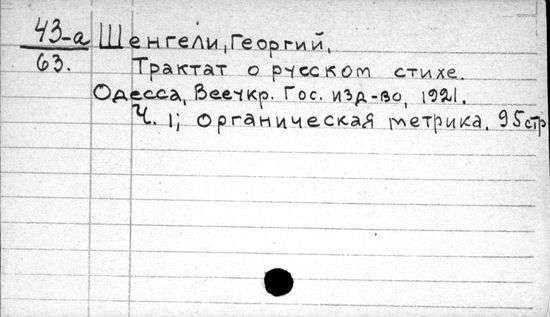 43-а Шенгели, Георгий.
63. Трактат о русском стихе.
Одесса, Всеукр. Гос. изд-во, 1921.
Ч. 1; Органическая метрика. 95 стр